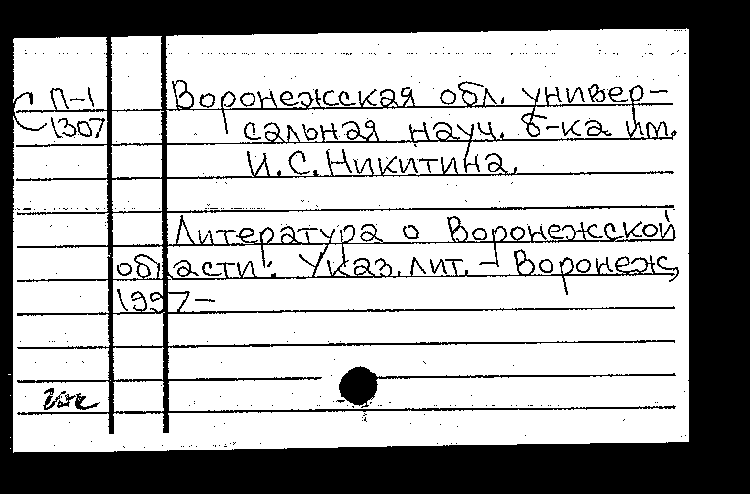 С П-1
1307
Воронежская обл. универ-
сальная науч. б-ка им.
И. С. Никитина.
Литература о Воронежской
области: Указ. лит. – Воронеж,
1997–